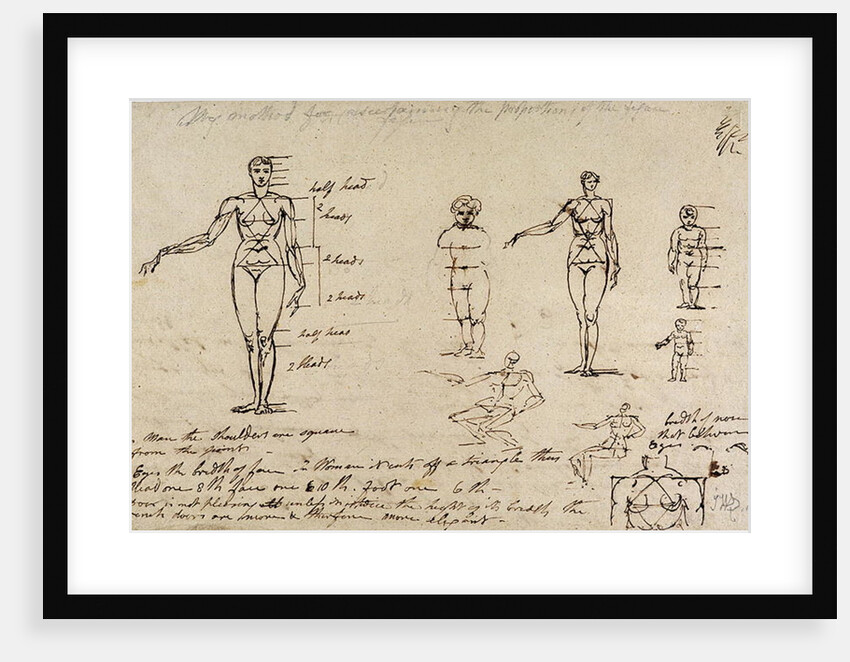 My method for ascertaining the proportions of the figure
half head
2 heads
2 heads
2 heads
half head
2 heads
Man the shoulders are square
from the point
Eyes the bredth of face in Woman it cuts off a triangle thus
Head one 8th face one 10th. foot one 6th
door is not pleasing unless it is twice the height of its bredth the
doors are more & therefore more elegant
bredth of nose
that between
Eyes